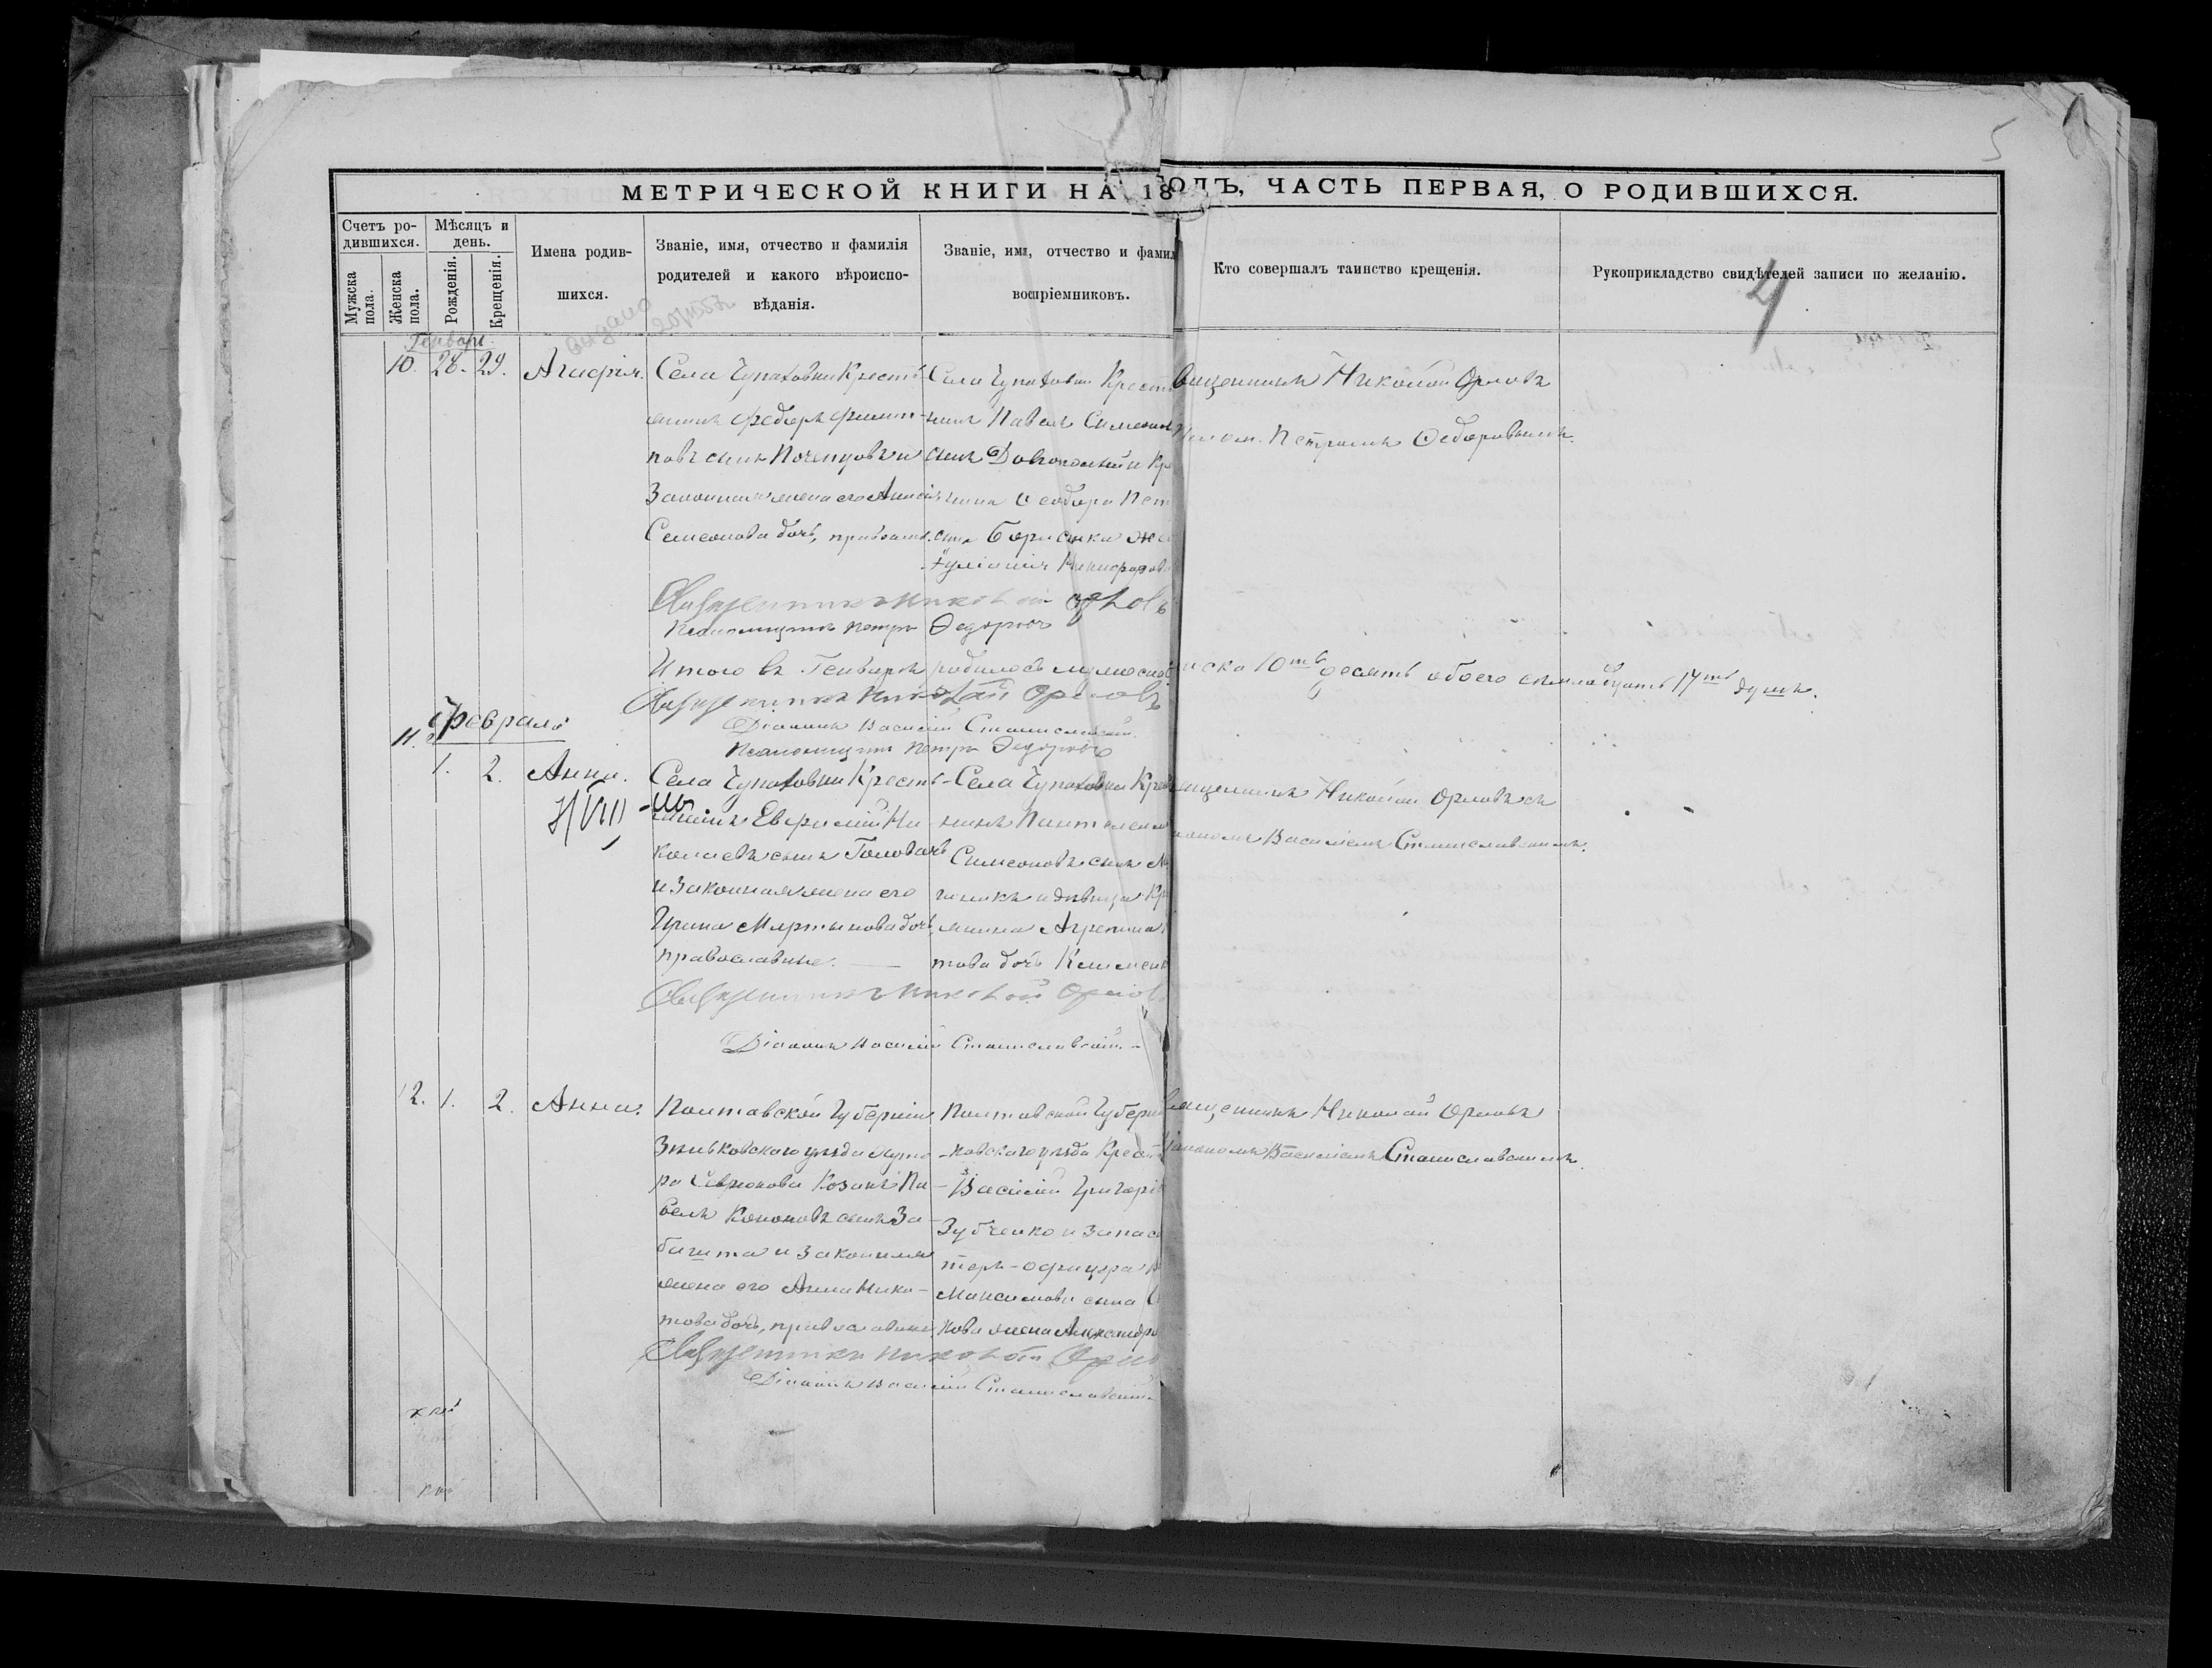 5
МЕТРИЧЕСКОЙ КНИГИ НА 18 ОДЪ, ЧАСТЬ ПЕРВАЯ, О РОДИВШИХСЯ.
Счетъ ро-
дившихся.
Мужска
пола.
Женска
пола.
Мѣсяцъ и
день.
Рожденія.
Крещенія.
Имена родив-
шихся.
Званіе, имя, отчество и фамилія
родителей и какого вѣроиспо-
вѣданія.
Званіе, имя, отчество и фамил
воспріемниковъ.
Кто совершалъ таинство крещенія.
Рукоприкладство свидѣтелей записи по желанію.
4
Генварь.
10. 28. 29.
Агафія.
Села Чупаховки Кресть-
янинъ Федоръ Филип-
повъ сынъ Поченцовъ и
Законная жена его
Симеонова дочь,
Села Чупаховки Крест
нинъ Павелъ Симеонов
сынъ и Кр
нина Феодора Пет
сына жен
Іуліанія Никифоров
вященникъ Николай Орловъ
Петромъ Федоровымъ.
Священникъ Николай Орловъ
Псаломщикъ Петръ Федоровъ
Итого въ Генварѣ родилось мужеска нска 10ть десять обоего пола 17ть душъ.
Священникъ Николай Орловъ
Діаконъ Василій Станиславскій
Псаломщикъ Петръ Федоровъ
Февраль
11. 1. 2.
Анна.
Села Чупаховки Кресть-
янинъ Евфимій Ни-
колаевъ сынъ Головачъ
и Законная жена его
Ирина Мартынова дочь,
православные.
Села Чупаховки Крес
нинъ Пантелеим
Симеоновъ сынъ
и дѣвица Кр
янина Агрепина
това дочь Климен
ященникъ Николай Орловъ съ
кономъ Василіемъ Станиславскимъ.
Священникъ Николай Орлов
Діаконъ Василій Станиславскій.
12. 1. 2.
Анна.
Полтавской Губерніи
Зѣньковскаго уѣзда хуто-
ра Козакъ Па-
велъ Кононовъ сынъ За-
и законная
жена его Анна Ники-
това дочь, православные
Полтавской Губерн
ковскаго уѣзда Крест
Василій Григорі
Зубченко и Запас
теръ-офицера
Максимова сына
нова жена Александр
вященникъ Николай Орловъ
Діакономъ Василіемъ Станиславскимъ.
Священникъ Николай Орло
Діаконъ Василій Станиславскій